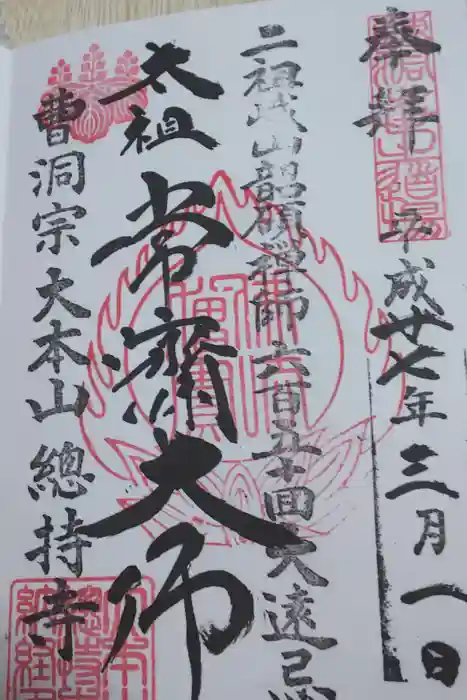 奉拝
平成廿七年三月一日
二祖峨山韶碩禅師六百五十回大遠忌
太祖常濟大师
曹洞宗大本山總持寺
佛法僧寶